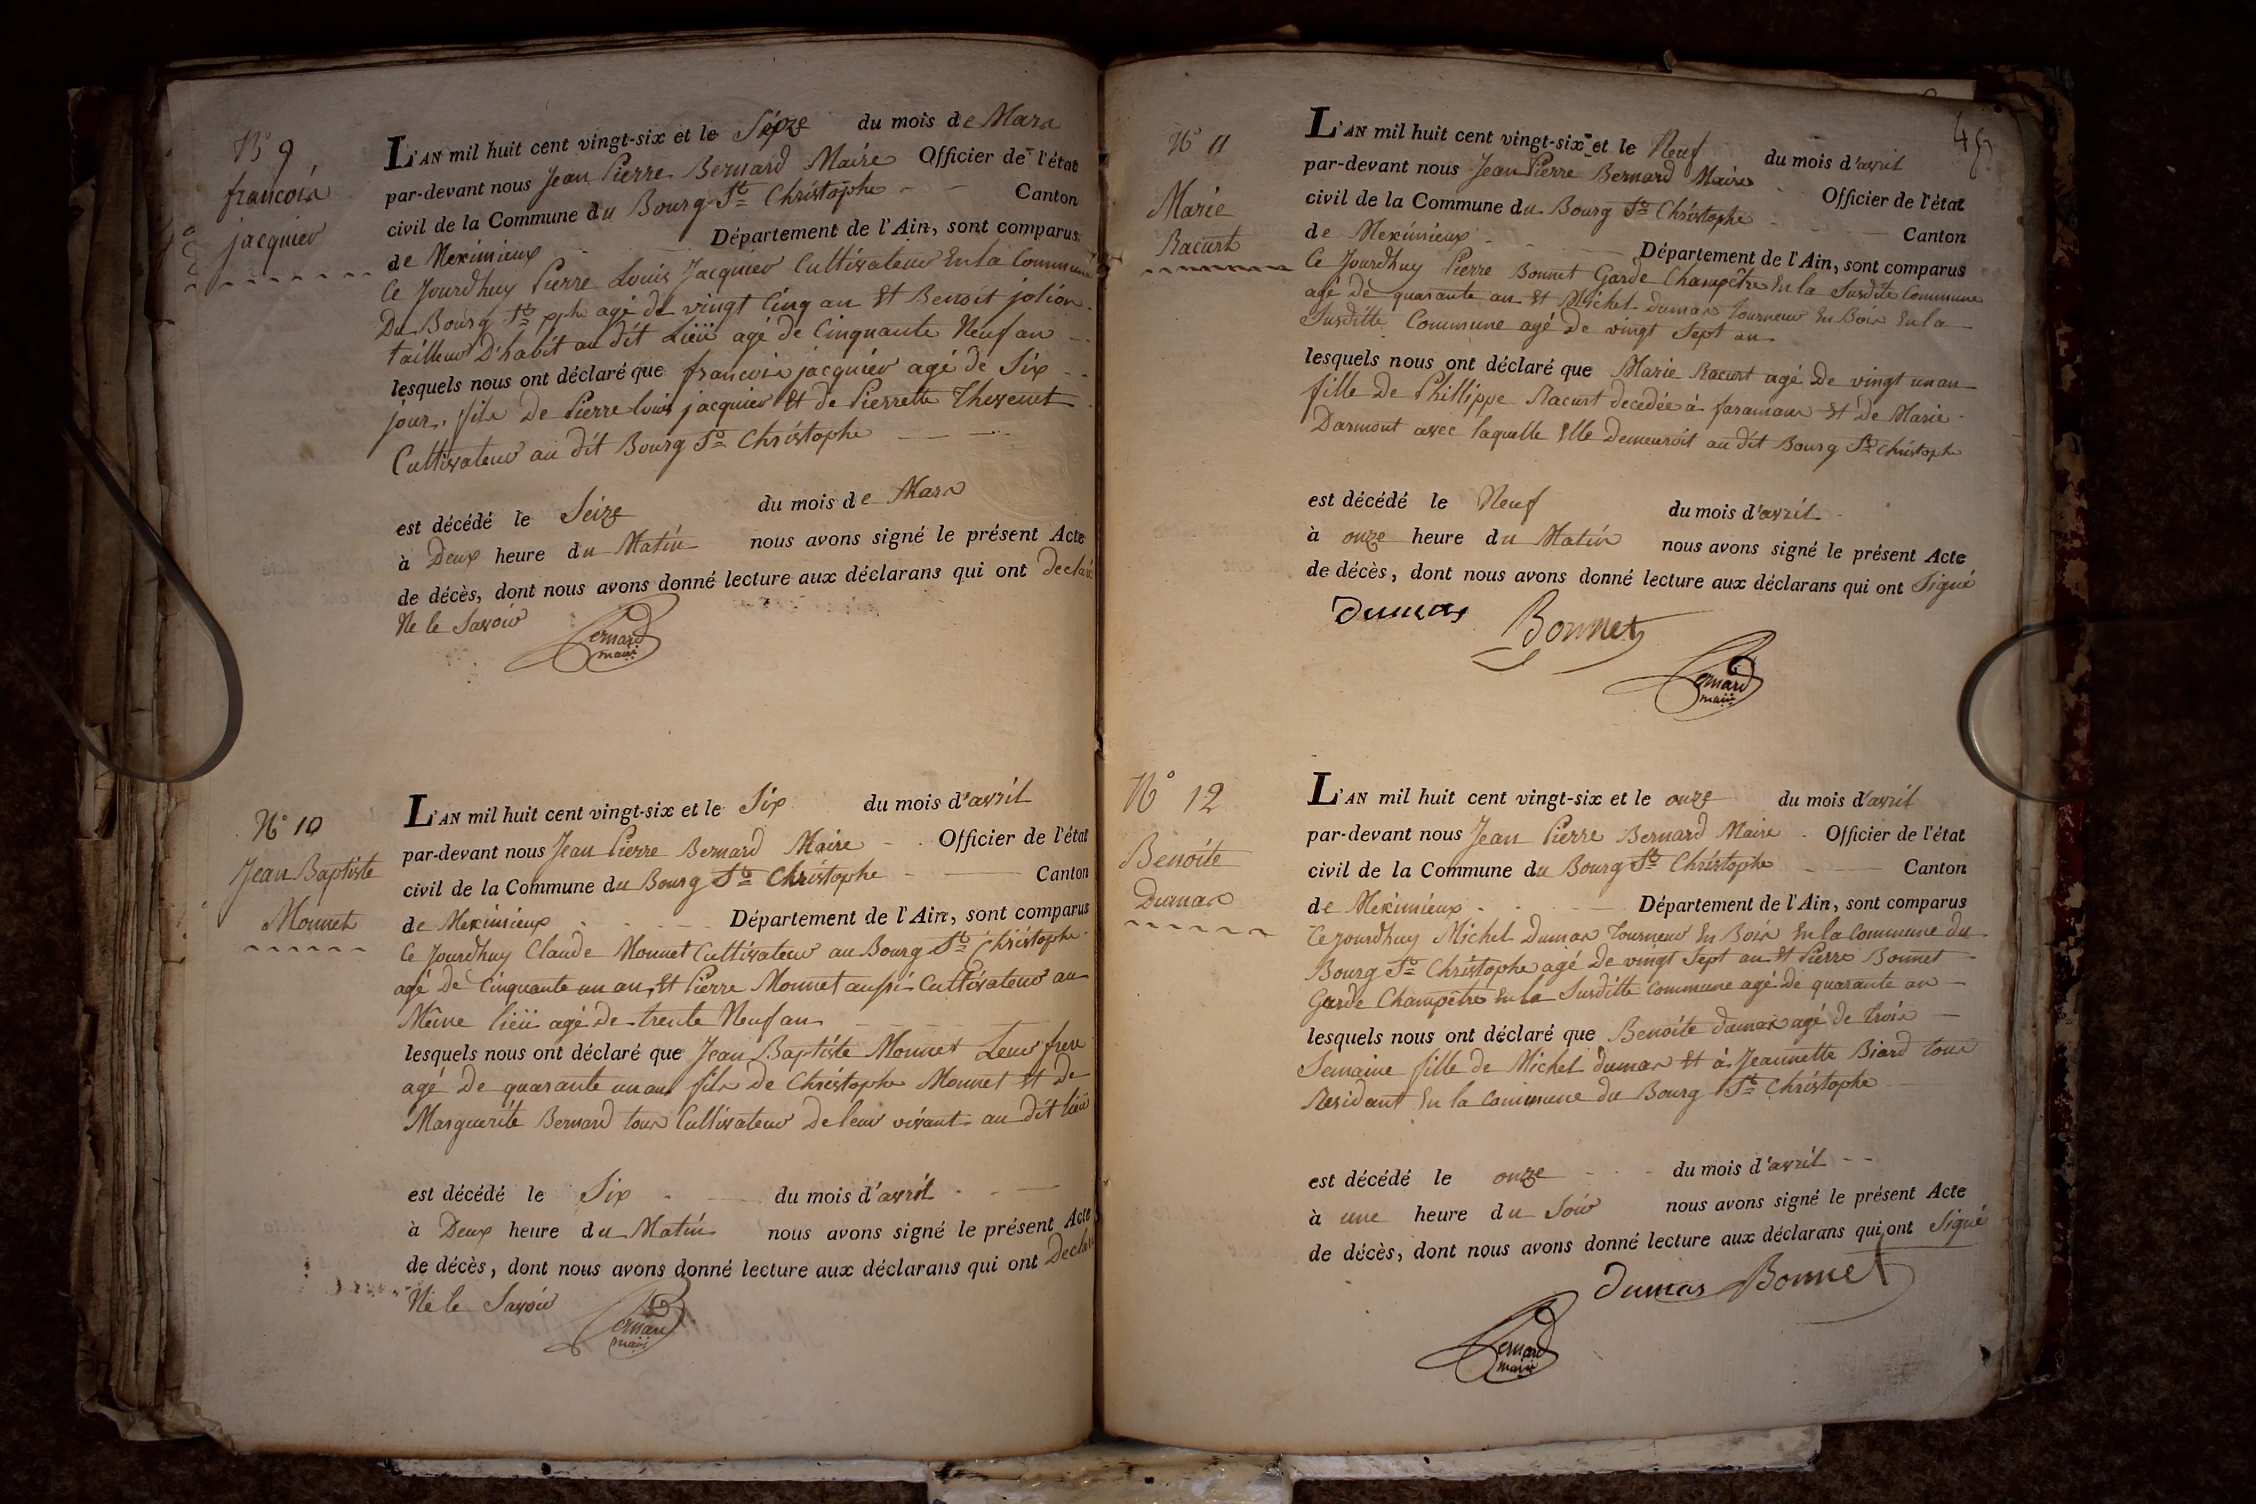 N° 9
francois
jacquier
L'AN mil huit cent vingt-six et le Seize du mois de Mars
par-devant nous Jean Pierre Bernard Maire Officier de l'état
civil de la Commune du Bourg St Christophe Canton
de Meximieux Département de l'Ain, sont comparus
Ce Jourdhuy Pierre Louis Jacquier Cultivateur En la Commune
Du Bourg St pphe agé de vingt Cinq an Et Benoit jolion
tailleur D'habit au dit Lieü agé de Cinquante Neuf an
lesquels nous ont déclaré que francois jacquier agé de Six
jour, fils De Pierre louis jacquier Et de Pierrette Thevenet
Cultivateur au dit Bourg St Christophe
est décédé le Seize du mois de Mars
à Deux heure du Matin nous avons signé le présent Acte
de décès, dont nous avons donné lecture aux déclarans qui ont declaré
Ne le Savoir
Bernard
maire
N° 10
Jean Baptiste
Monnet
L'AN mil huit cent vingt-six et le Six du mois d'avril
par-devant nous Jean Pierre Bernard Maire Officier de l'état
civil de la Commune du Bourg St Christophe Canton
de Meximieux Département de l'Ain, sont comparus
Ce Jourdhuy Claude Monnet Cultivateur au Bourg St Christophe
agé De Cinquante un an, Et Pierre Monnet aussi Cultivateur au
Même lieü agé de trente Neuf an
lesquels nous ont déclaré que Jean Baptiste Monnet Leur frere
agé De quarante un an fils de Christophe Monnet Et de
Marguerite Bernard tous Cultivateur De leur vivant au dit lieü
est décédé le Six du mois d'avril
à Deux heure du Matin nous avons signé le présent Acte
de décès, dont nous avons donné lecture aux déclarans qui ont Declaré
Ne le Savoir
Bernard
maire
45
N° 11
Marie
Racurt
L'AN mil huit cent vingt-six et le Neuf du mois d'avril
par-devant nous Jean Pierre Bernard Maire Officier de l'état
civil de la Commune du Bourg St Christophe Canton
de Meximieux Département de l'Ain, sont comparus
Ce Jourdhuy Pierre Bonnet Garde Champêtre En la Susdite Commune
agé de quarante an Et Michel Dumas Tourneur En Bois En la
Susditte Commune agé De vingt Sept an
lesquels nous ont déclaré que Marie Racurt agé De vingt un an
fille De Phillippe Racurt decedée à faramans Et De Marie
Darmont avec laquelle Elle Demeuroit au dit Bourg St Christophe
est décédé le Neuf du mois d'avril
à onze heure du Matin nous avons signé le présent Acte
de décès, dont nous avons donné lecture aux déclarans qui ont Signé
Dumas Bonnet
Bernard
maire
N° 12
Benoite
Dumas
L'AN mil huit cent vingt-six et le onze du mois d'avril
par-devant nous Jean Pierre Bernard Maire Officier de l'état
civil de la Commune du Bourg St Christophe Canton
de Meximieux Département de l'Ain, sont comparus
Ce jourdhuy Michel Dumas Tourneur En Bois En la Commune du
Bourg St Christophe agé de vingt Sept an Et Pierre Bonnet
Garde Champêtre En la Susditte Commune agé de quarante an
lesquels nous ont déclaré que Benoite dumas agé de Trois
Semaine fille de Michel dumas Et à Jeannette Biard tous
Residant En la Commune du Bourg St Christophe
est décédé le onze du mois d'avril
à une heure du Soir nous avons signé le présent Acte
de décès, dont nous avons donné lecture aux déclarans qui ont Signé
Dumas Bonnet
Bernard
maire